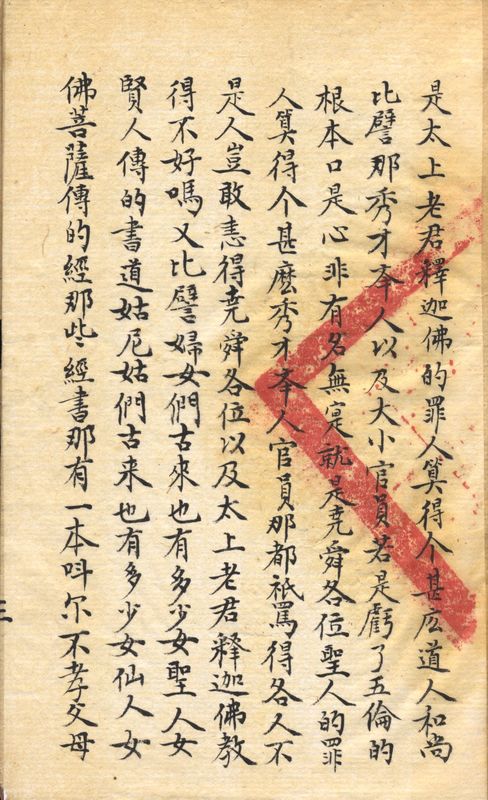 是太上老君釋迦佛的罪人算得个甚広道人和尚
比譬那秀才夲人以及大小官員若是虧了五倫的
根本口是心非有名無寔就是尭舜各位聖人的罪
人算得个甚麽秀才夲人官員那都祇罵得各人不
是人豈敢恚得尭舜各位以及太上老君釋迦佛教
得不好嗎又比譬婦女們古來也有多少女聖人女
賢人傳的書道姑尼姑們古来也有多少女仙人女
佛菩薩傳的經那些經書那有一本呌尔不孝父母